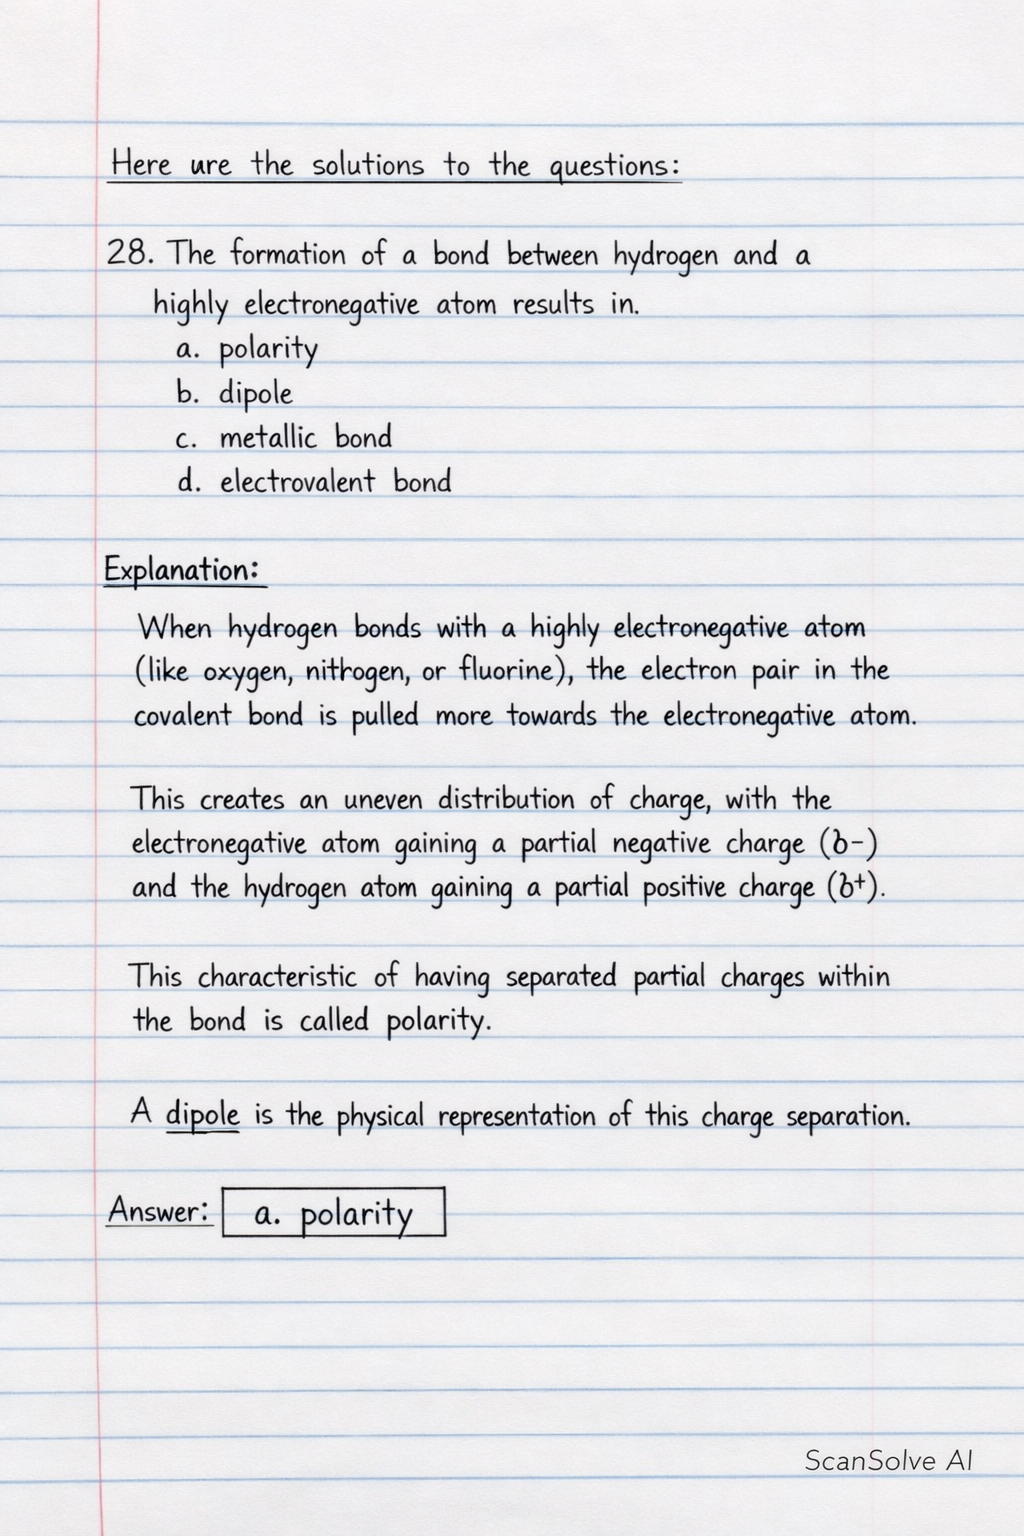 Here are the solutions to the questions:
28. The formation of a bond between hydrogen and a
highly electronegative atom results in.
a. polarity
b. dipole
c. metallic bond
d. electrovalent bond
Explanation:
When hydrogen bonds with a highly electronegative atom
(like oxygen, nitrogen, or fluorine), the electron pair in the
covalent bond is pulled more towards the electronegative atom.
This creates an uneven distribution of charge, with the
electronegative atom gaining a partial negative charge (δ-)
and the hydrogen atom gaining a partial positive charge (δ+).
This characteristic of having separated partial charges within
the bond is called polarity.
A dipole is the physical representation of this charge separation.
Answer: a. polarity
ScanSolve AI